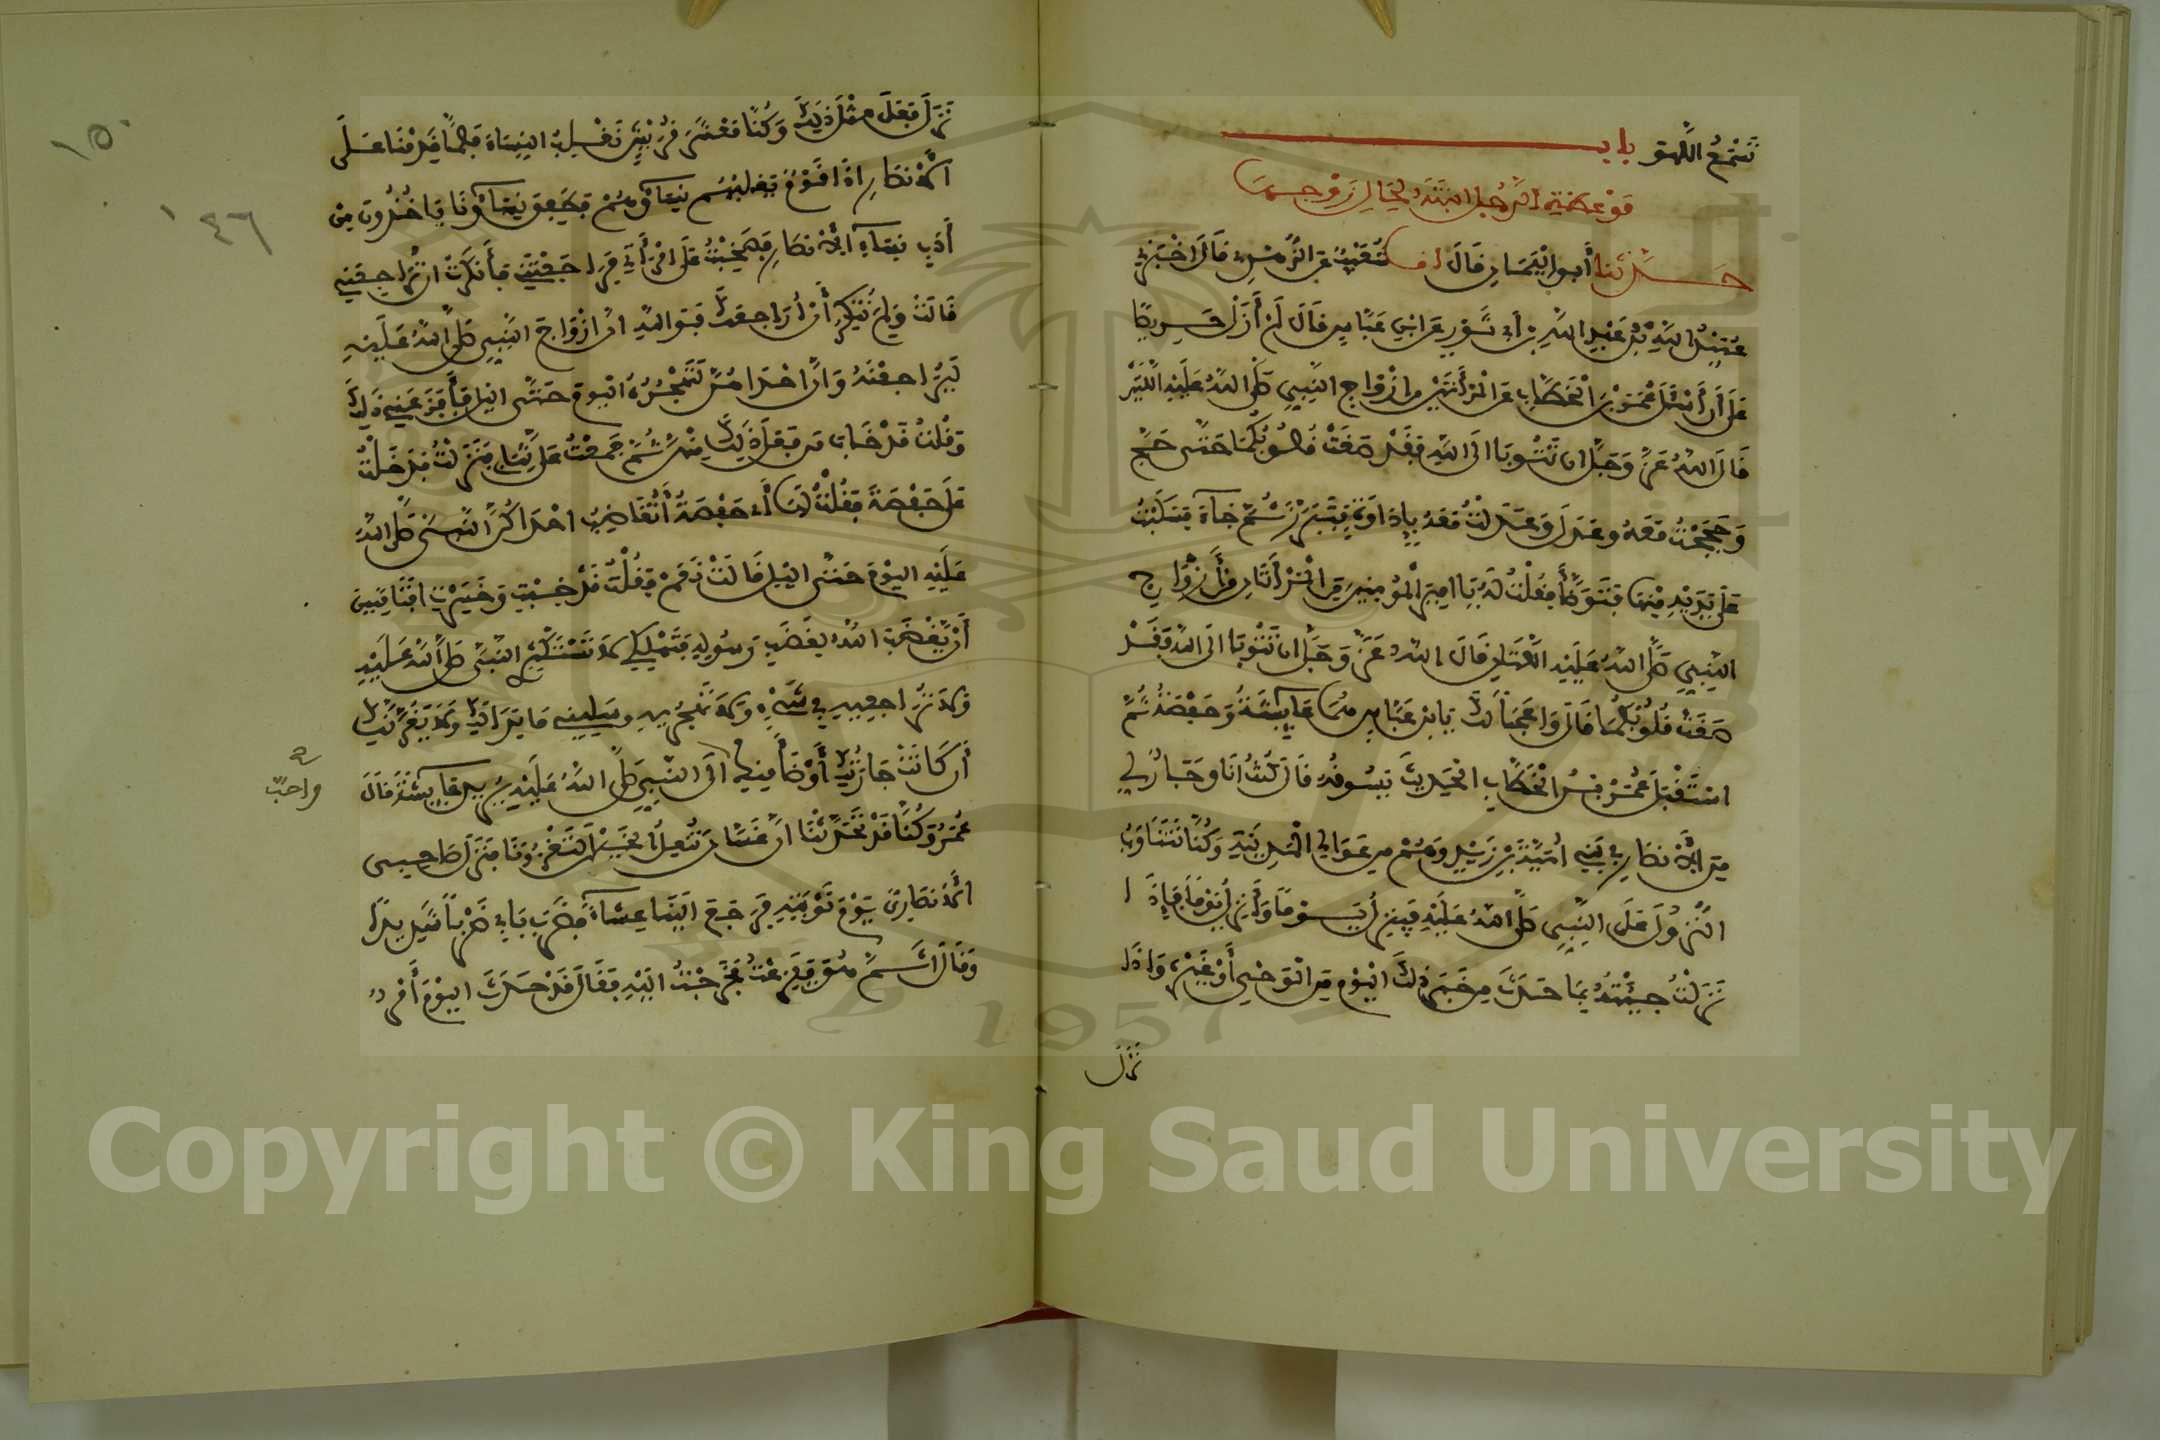 تَسْمَعُ اللَّهْوَ بابــ
مَوْعِظَةِ الرَّجُلِ ابْنَتَهُ لِحَالِ زَوْجِهَا
حَدَّثَنَا أَبُو الْيَمَانِ قَالَ انا شُعَيْبٌ عَنِ الزُّهْرِي قَالَ أَخْبَرَنِي
عُبَيْدُ اللَّهِ بْنُ عَبْدِ اللَّهِ بن أَبِي ثَوْرٍ عَنِ ابْنِ عَبَّاسٍ قَالَ لَمْ أَزَلْ حَرِيصًا
عَلَى أَن أَسْئَلَ عُمَرَ بْنَ الْخَطَّابِ عَنِ الْمَرْأَتَيْنِ من أَزْوَاجِ النَّبِيِّ صَلَّى اللَّهُ عَلَيْهِ اللَّتَيْنِ
قَالَ اللَّهُ عَزَّ وَجَلَّ ان تَتُوبَا الَى اللَّهِ فَقَدْ صَغَتْ قُلُوبُكُمَا حَتَّى حَجَّ
وَحَجَجْتُ مَعَهُ وعَدَلَ وَعَدَلْتُ مَعَهُ بِإِدَاوَةٍ فَتَبَرَّزَ ثُمَّ جَآءَ فَسَكَبْتُ
عَلَى يَدَيْهِ مِنْهَا فَتَوَضَّأَ فَقُلْتُ لَهُ يَا امِيرَ الْمُومِنِينَ مَنِ الْمَرْأَتَانِ مِنْ أَزْوَاجِ
النَّبِيِّ صَلَّى اللَّهُ عَلَيْهِ اللَّتَانِ قَالَ اللَّهُ عَزَّ وَجَلَّ ان تَتُوبَا الَى اللَّهِ فَقَدْ
صَغَتْ قُلُوبُكُمَا قَالَ وَاعَجَبًا لَكَ يَا بْنَ عَبَّاسٍ هُمَا عَايِشَةُ وَحَفْصَةُ ثُمَّ
اسْتَقْبَلَ عُمَرُ بْنُ الْخَطَّابِ الْحَدِيثَ يَسُوقُهُ قَالَ كُنْتُ أَنَا وَجَارٌ لِي
مِنَ الْأَنصَارِ فِي بَنِي أُمَيَّةَ بْنِ زَيْدٍ وَهُمْ مِن عَوَالِي الْمَدِينَةِ وَكُنَّا نَتَنَاوَبُ
النُّزُولَ عَلَى النَّبِيِّ صَلَّى اللَّهُ عَلَيْهِ فَيَنْزِلُ يَوْمًا وَأَنْزِلُ يَوْمًا فَإِذَا
نَزَلْتُ جِئْتُهُ بِمَا حَدَثَ مِنْ خَبَرِ ذَلِكَ الْيَوْمِ مِنَ الْوَحْيِ أَوْ غَيْرِهِ وَاذَا
نَزَلَ
نَزَلَ فَعَلَ مِثْلَ ذَلِكَ وَكُنَّا مَعْشَرَ قُرَيْشٍ نَغْلِبُ النِّسَاءَ فَلَمَّا قَدِمْنَا عَلَى
الْأَنصَارِ اذَا قَوْمٌ تَغْلِبُهُم نِسَاؤُهُمْ فَطَفِقَ نِسَاؤُنَا يَاخُذْنَ مِنْ
أَدَبِ نِسَآءِ الْأَنصَارِ فَصَخِبْتُ عَلَى امْرَأَتِي فَرَاجَعَتْنِي فَأَنْكَرْتُ أَنْ تُرَاجِعَنِي
قَالَتْ وَلِمَ تُنْكِرُ أَنْ أُرَاجِعَكَ فَوَاللَّهِ انَّ أَزْوَاجَ النَّبِيِّ صَلَّى اللَّهُ عَلَيْهِ
لَيُرَاجِعْنَهُ وَانَّ احْدَاهُنَّ لَتَهْجُرُهُ الْيَوْمَ حَتَّى اللَّيلِ فَأَفْزَعَنِي ذَلِكَ
وَقُلْتُ قَدْ خَابَ مَن فَعَلَ ذَلِكَ مِنْهُنَّ ثُمَّ جَمَعْتُ عَلَيَّ ثِيَابِي فَنَزَلْتُ فَدَخَلْتُ
عَلَى حَفْصَةَ فَقُلْتُ لَهَا أَي حَفْصَةُ أَتُغَاضِبُ احْدَاكُنَّ النَّبِيَّ صَلَّى اللَّهُ
عَلَيْهِ الْيَوْمَ حَتَّى اللَّيْلِ قَالَتْ نَعَمْ فَقُلْتُ قَدْ خِبْتِ وَخَسِرْتِ افَتَامَنِينَ
أَنْ يَغْضَبَ اللَّهُ لِغَضَبِ رَسُولِهِ فَتَهْلِكِي لَا تَسْتَكْثِرِي النَّبِيَّ صَلَّى اللَّهُ عَلَيْهِ
وَلَا تُرَاجِعِيهِ فِي شَيْءٍ وَلَا تَهْجُرِيهِ وَسَلِينِي مَا بَدَا لَكِ وَلَا يَغُرَّنَّكِ
أَن كَانَتْ جَارَتُكِ أَوْضَأَ مِنكِ الَى النَّبِيِّ صَلَّى اللَّهُ عَلَيْهِ يُرِيدُ عَايِشَةَ قَالَ
وأحبّ
عُمَرُ وَكُنَّا قَدْ تَحَدَّثْنَا انَّ غَسَّانَ تُنْعِلُ الْخَيْلَ لِتَغْزُوَنَا فَنَزَلَ صَاحِبِي
الْأَنصَارِيُّ يَوْمَ نَوْبَتِهِ فَرَجَعَ الَيْنَا عِشَاءً فَضَرَبَ بَابِي ضَرْبًا شَدِيدًا
وَقَالَ أَثَمَّ هُوَ فَفَزِعْتُ فَخَرَجْتُ الَيْهِ فَقَالَ قَدْ حَدَثَ الْيَوْمَ أَمْرٌ
١٥٠
١٤٦
Copyright © King Saud University
1957